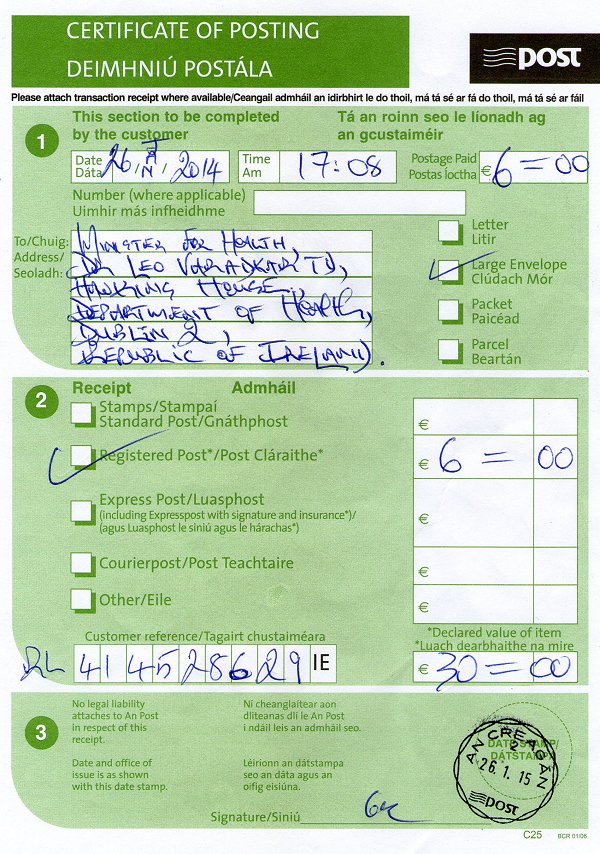 CERTIFICATE OF POSTING
DEIMHNIÚ POSTÁLA
post
Please attach transaction receipt where available/Ceangail admháil an idirbhirt le do thoil, má tá sé ar fá do thoil, má tá sé ar fáil
1
This section to be completed
by the customer
Tá an roinn seo le líonadh ag
an gcustaiméir
Date
Dáta
26 / JAN / 2014
Time
Am
17:08
Postage Paid
Postas íoctha
€6 = 00
Number (where applicable)
Uimhir más infheidhme
To/Chuig:
Address/
Seoladh:
MINISTER FOR HEALTH,
DR LEO VARADKAR TD,
HAWKINS HOUSE,
DEPARTMENT OF HEALTH,
DUBLIN 2,
REPUBLIC OF IRELAND.
Letter
Litir
Large Envelope
Clúdach Mór
Packet
Paicéad
Parcel
Beartán
2
Receipt
Admháil
Stamps/Stampaí
Standard Post/Gnáthphost
€
Registered Post*/Post Cláraithe*
€ 6 = 00
Express Post/Luasphost
(including Expresspost with signature and insurance*)/
(agus Luasphost le siniú agus le hárachas*)
€
Courierpost/Post Teachtaire
€
Other/Eile
€
Customer reference/Tagairt chustaiméara
RL 414528629 IE
*Declared value of item
*Luach dearbhaithe na míre
€ 30 = 00
3
No legal liability
attaches to An Post
in respect of this
receipt.
Ní cheanglaítear aon
dliteanas dlí le An Post
i ndáil leis an admháil seo.
Date and office of
issue is as shown
with this date stamp.
Léiríonn an dátstampa
seo an dáta agus an
oifig eisiúna.
DATE STAMP/
DÁTSTAMPA
AN CREAGÁN
2
26.1.15
post
Signature/Siniú
C25
BCR 01/06